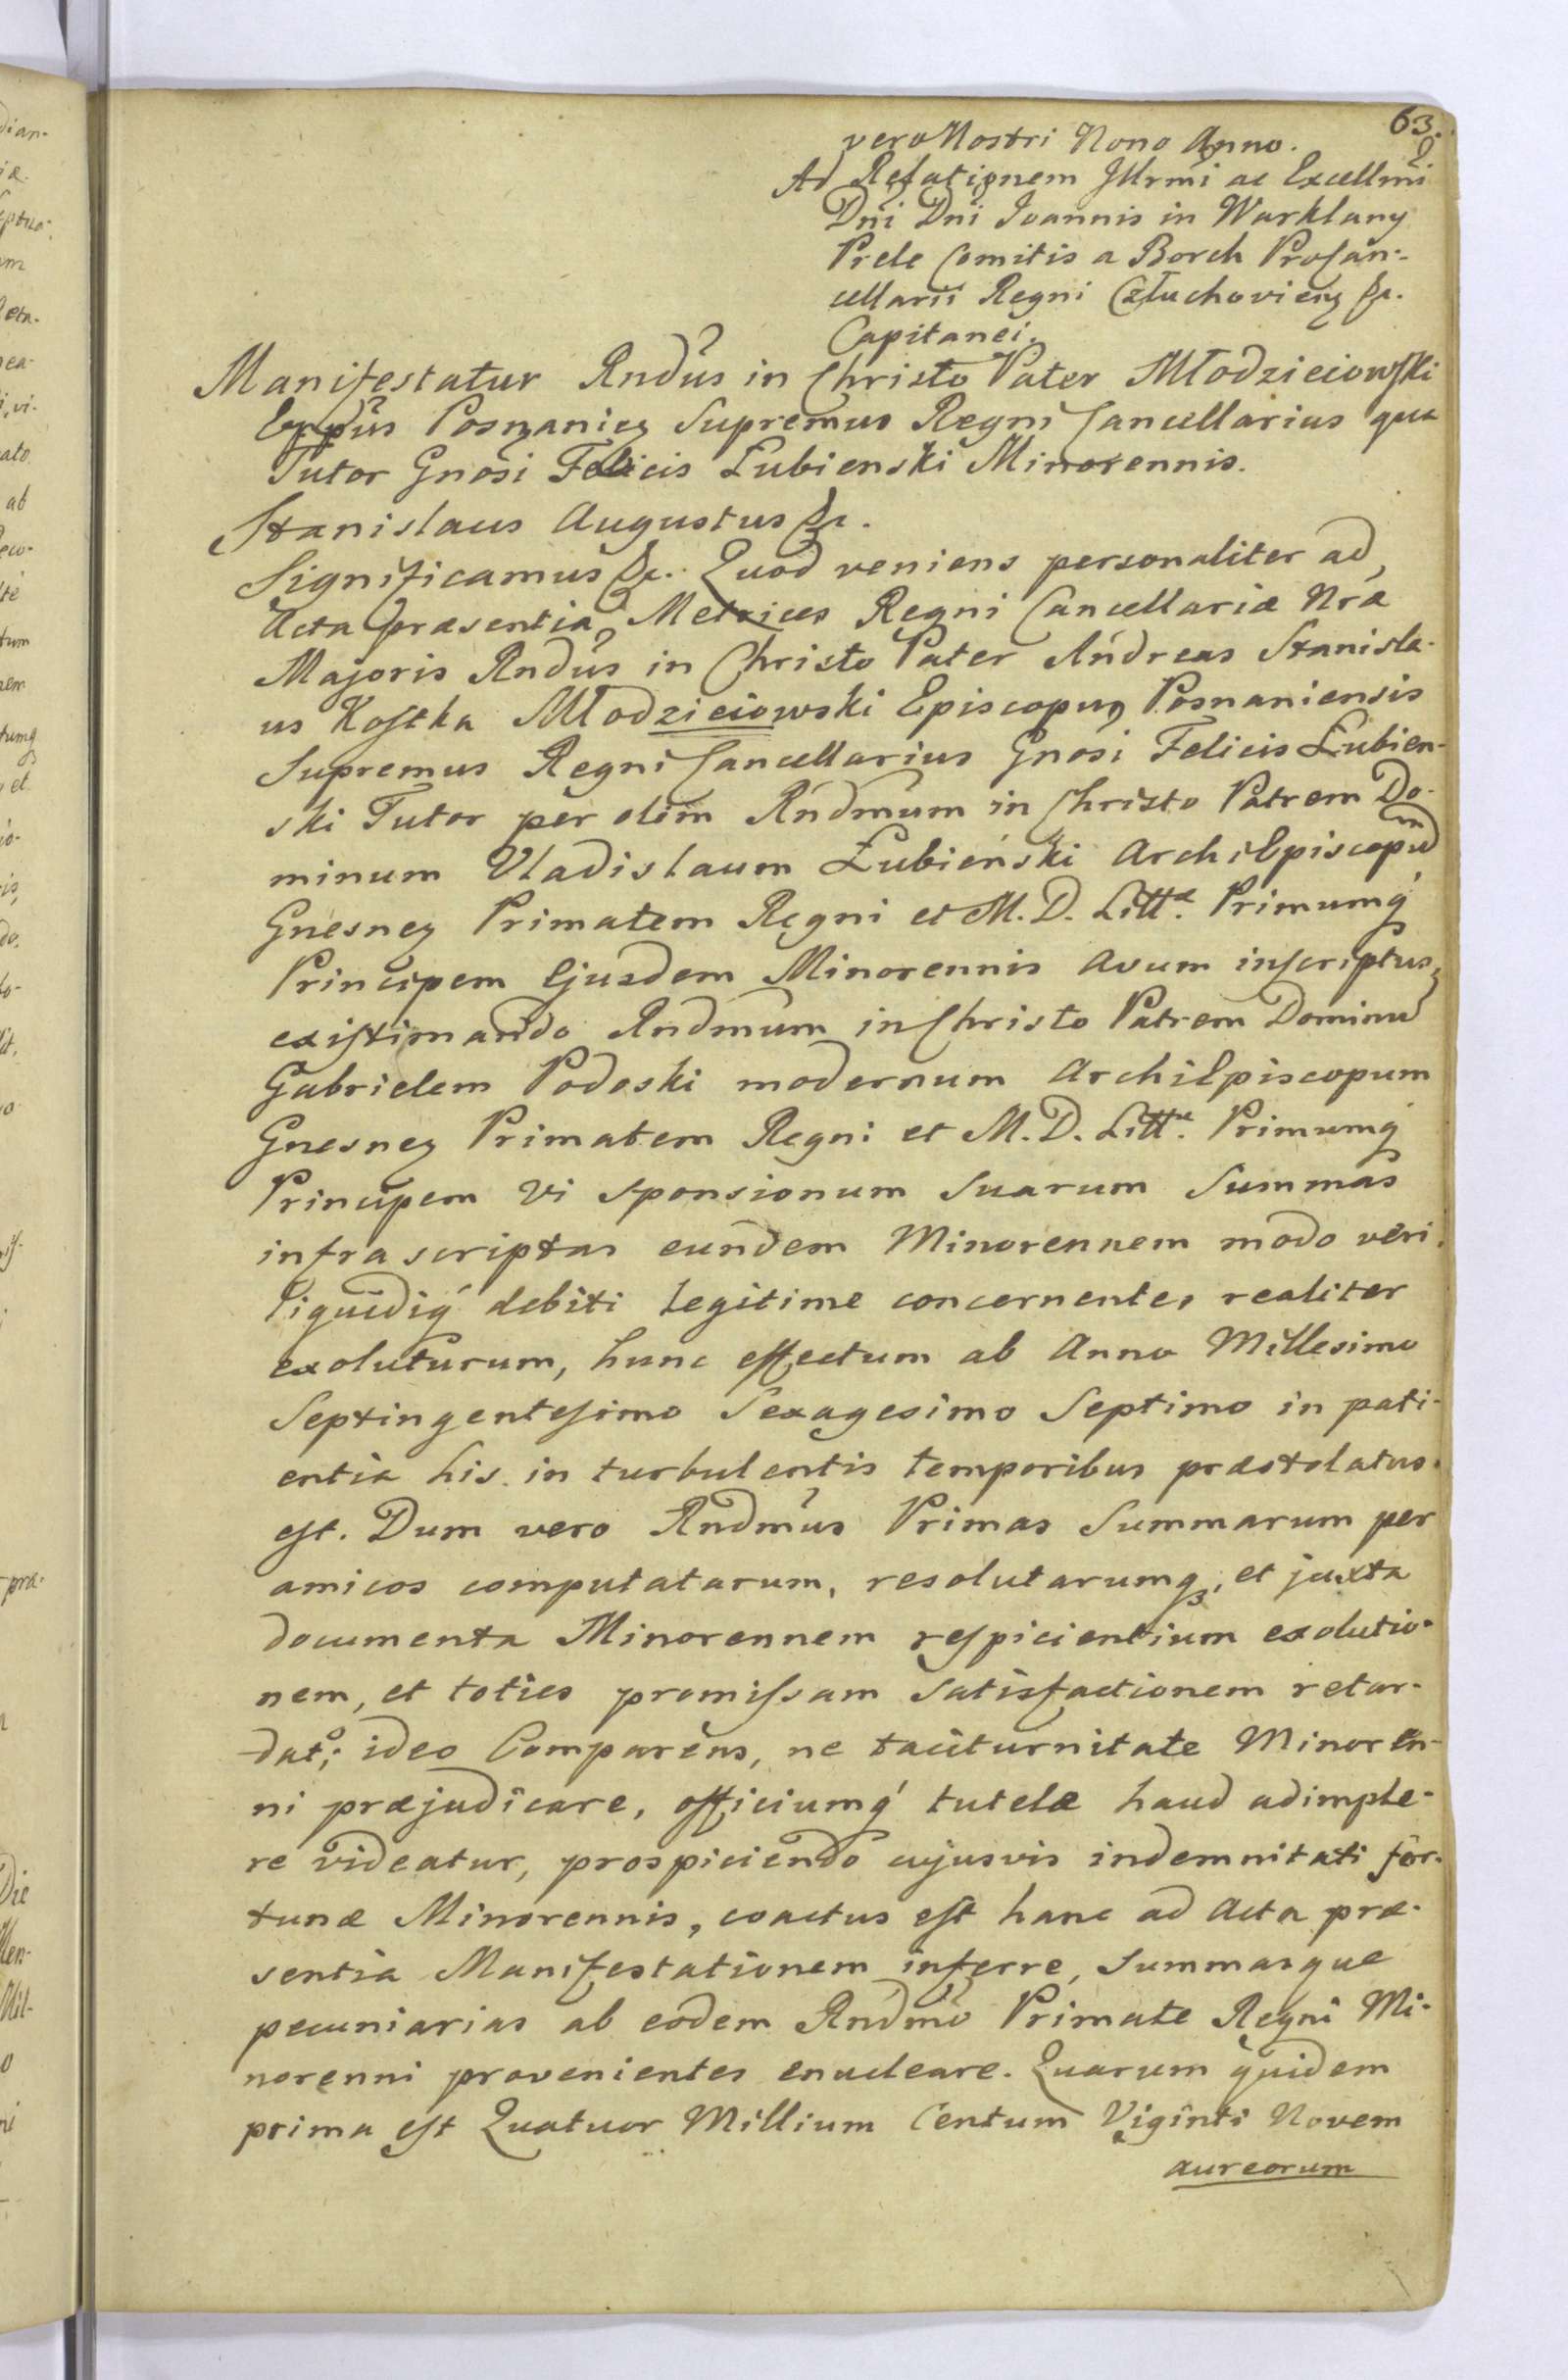 63.
vero Nostri Nono Anno.
Ad Relationem Jllrmi ac Excellmi
Dni Dni Joannis in Warklany
Prele Comitis a Borch ProCan-
cellarii Regni Człuchovieng &c.
Capitanei.
Manifestatur Rndus in Christo Pater Młodzieiowski
Eppus Posnanieg Supremus Regni Cancellarius qua
Tutor Gnosi Felicis Łubienski Minorennis.
Stanislaus Augustus &c.
Significamus &c. Quod veniens personaliter ad
Acta præsentia Metrices Regni Cancellariæ Nræ
Majoris Rndus in Christo Pater Andreas Stanisla-
us Kostka Młodzieiowski Episcopus Posnaniensis
Supremus Regni Cancellarius Gnosi Felicis Łubien-
ski Tutor per olim Rndmum in Christo Patrem Do-
minum Vladislaum Łubieński ArchiEpiscopum
Gnesneg Primatem Regni et M. D. Littæ. Primumq
Principem Ejusdem Minorennis Avum inscriptus,
existimando Rndmum in Christo Patrem Dominu
Gabrielem Podoski modernum ArchiEpiscopum
Gnesneg Primatem Regni et M. D. Littæ. Primumq
Principem vi sponsionum suarum Summas
infra scriptas eundem Minorennem modo veri
liquidiq debiti legitime concernentes realiter
exoluturum, hunc effectum ab Anno Millesimo
Septingentesimo Sexagesimo Septimo in pati-
entia his in turbulentis temporibus præstolatus
est. Dum vero Rndmus Primas Summarum per
amicos computatarum, resolutarumq, et juxta
documenta Minorennem respicientium exolutio-
nem, et toties promissam satisfactionem retar-
dat; ideo Comparens, ne taciturnitate Minoren-
ni præjudicare, officiumq tutelæ haud adimple-
re videatur, prospiciendo cujusvis indemnitati for-
tunæ Minorennis, coactus est hanc ad Acta præ-
sentia Manifestationem inferre, Summasque
pecuniarias ab eodem Rndmo Primate Regni Mi-
norenni provenientes enucleare. Quarum quidem
prima est Quatuor Millium Centum Viginti Novem
aureorum